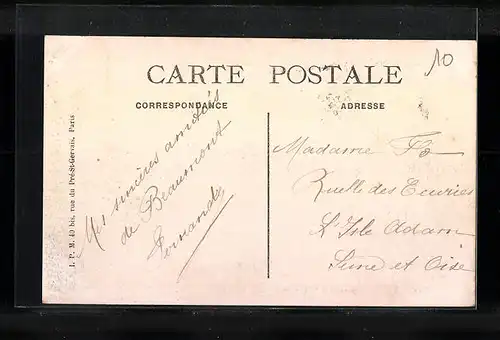 10
CARTE POSTALE
CORRESPONDANCE
ADRESSE
Mes sincères amitiés
de Beaumont
Fernande
Madame
Ruelle des Ecuries
L'Isle Adam
Seine et Oise
I. P. M. 40 bis, rue du Pré-St-Gervais, Paris